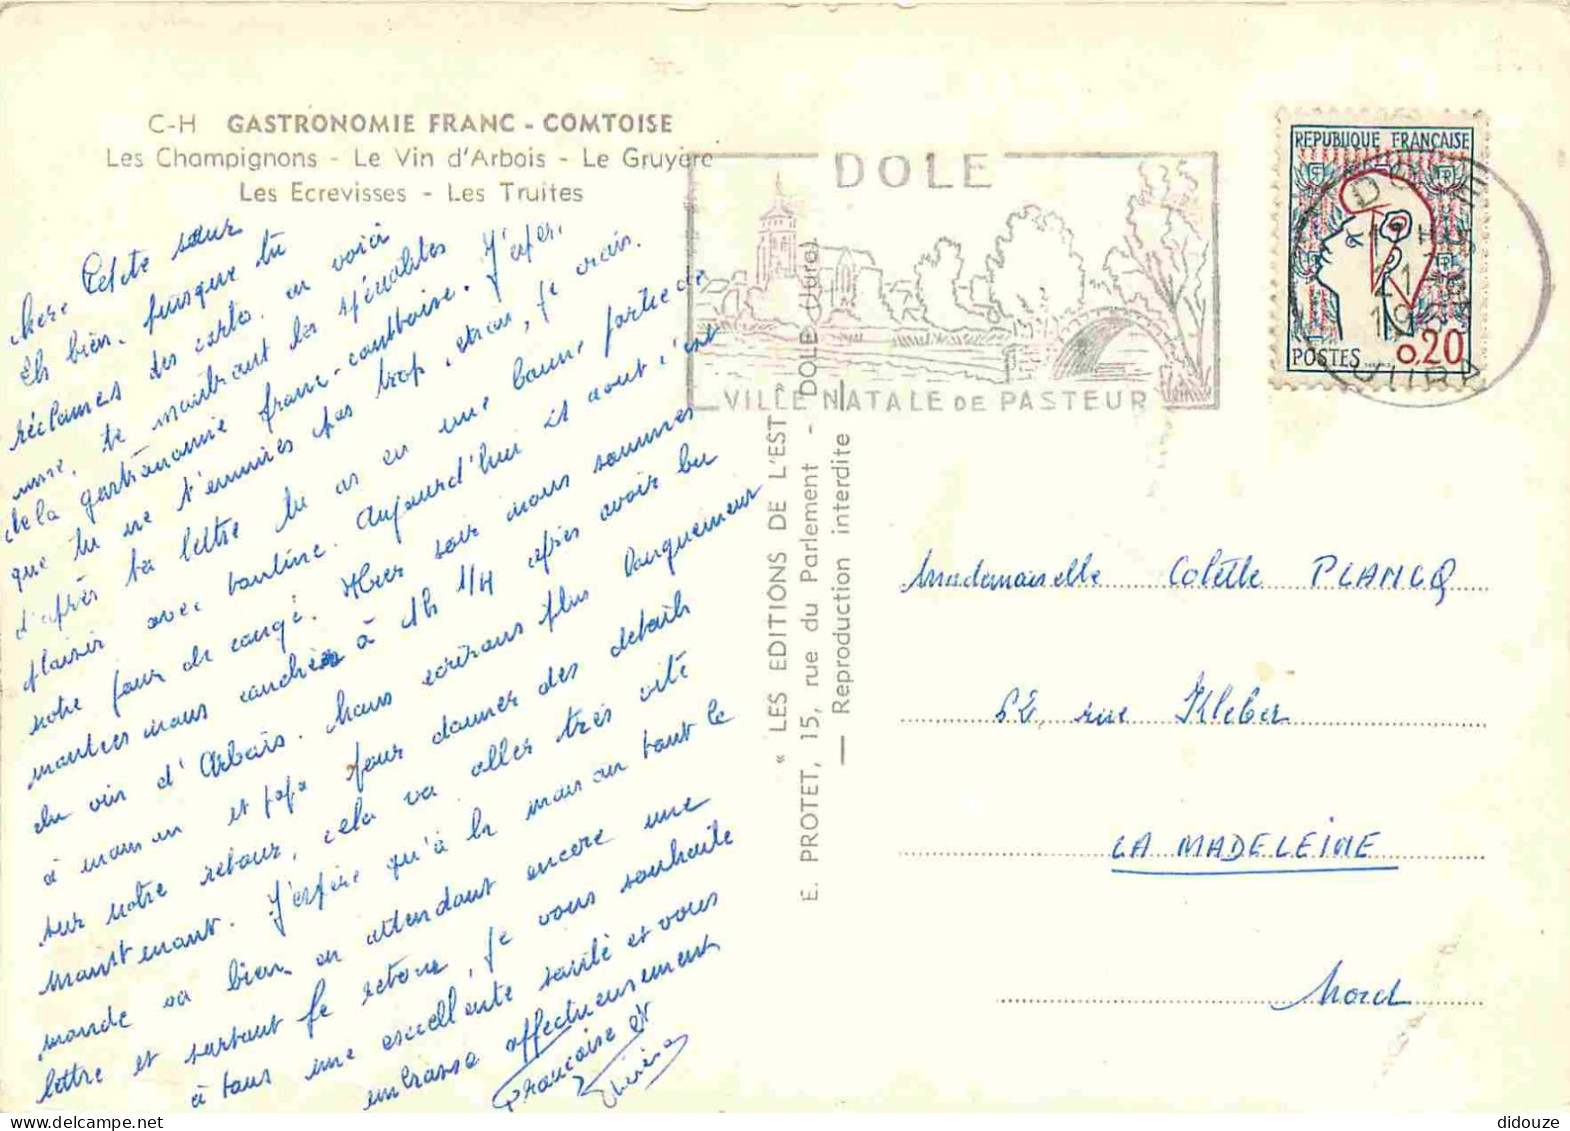 C-H GASTRONOMIE FRANC - COMTOISE
Les Champignons - Le Vin d'Arbois - Le Gruyère
Les Ecrevisses - Les Truites
chere Petite sœur
Eh bien, puisque tu
réclames des cartes, en voici
une, te montrant les spécialités
de la gastronomie franc-comtoise. J'espère
que tu ne t'ennuies pas trop, sinon, je crois
d'après ta lettre tu as eu une bonne partie de
plaisir avec Pauline. Aujourd'hui 15 aout c'est
notre jour de congé. Hier soir nous sommes
rentrés nous coucher à 1h 1/4 après avoir bu
du vin d'Arbois. Nous écrirons plus longuement
à maman et papa pour donner des détails
sur notre retour, cela va aller très vite
maintenant. J'espère qu'à la maison tout le
monde va bien en attendant encore une
lettre et surtout le retour, je vous souhaite
à tous une excellente santé et vous
embrasse affectueusement
Françoise et
DOLE
VILLE NATALE DE PASTEUR
REPUBLIQUE FRANÇAISE
POSTES 0,20
" LES EDITIONS DE L'EST "
E. PROTET, 15, rue du Parlement - DOLE (Jura)
— Reproduction interdite —
Mademoiselle Colette PLANCQ
62, rue Kleber
LA MADELEINE
Nord
didouze